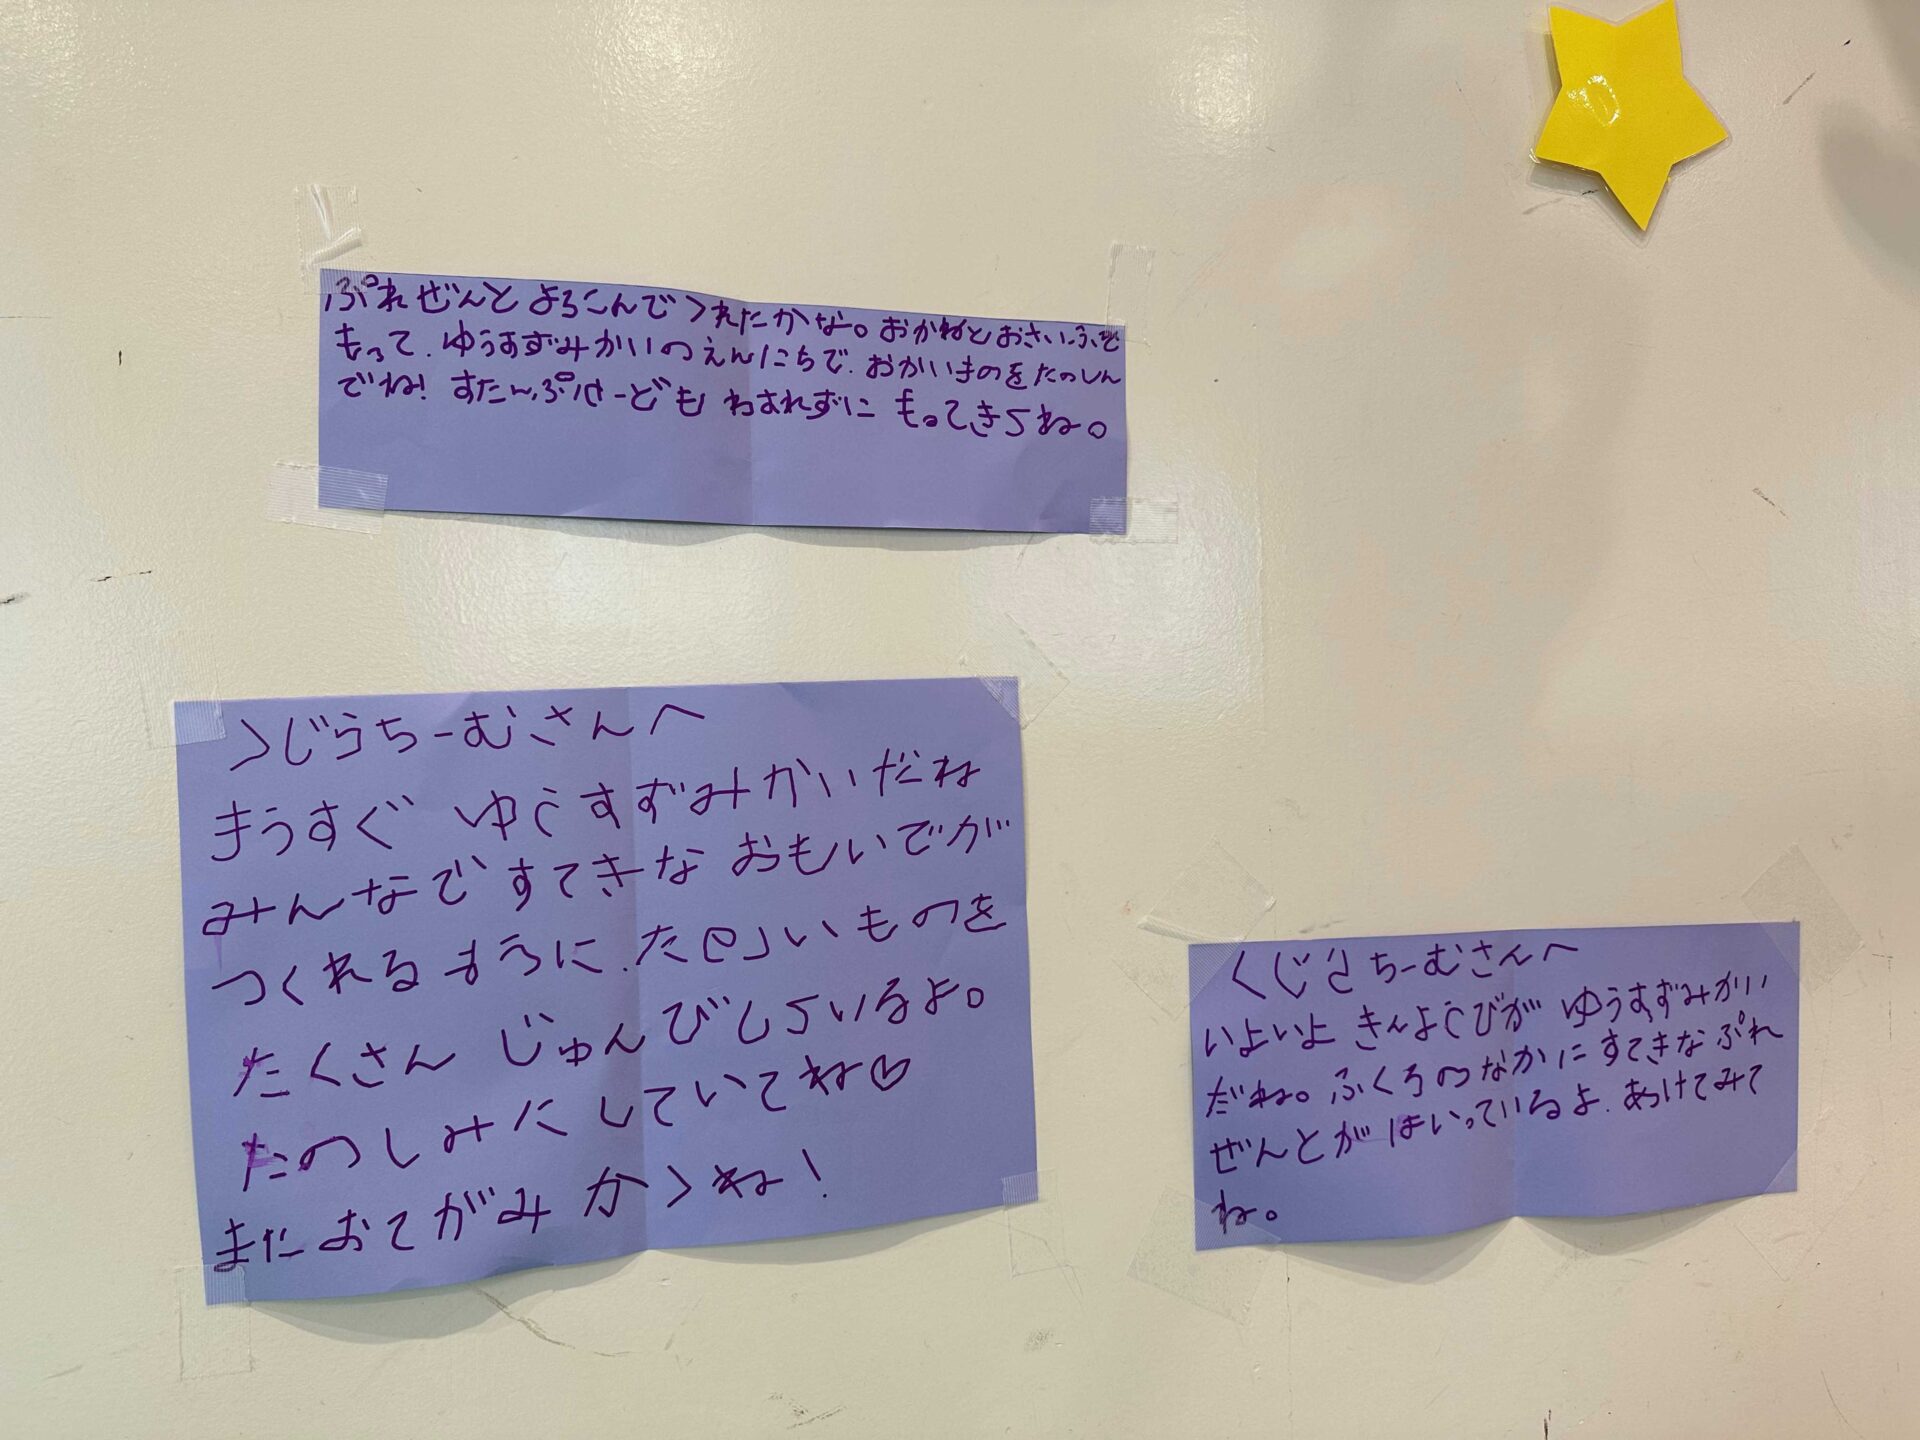 ぷれぜんと よろこんでくれたかな。おかねとおさいふを
もって、ゆうすずみかいのえんにちで、おかいものをたのしん
でね! すたんぷかーども わすれずに もってきてね。
くじらちーむさんへ
もうすぐ ゆうすずみかいだね
みんなで すてきな おもいでが
つくれるように、たのしいものを
たくさん じゅんびしているよ。
たのしみに していてね♡
またおてがみ かくね!
くじらちーむさんへ
いよいよ きんようびが ゆうすずみかい
だね。ふくろのなかに すてきな ぷれ
ぜんとが はいっているよ、あけてみて
ね。